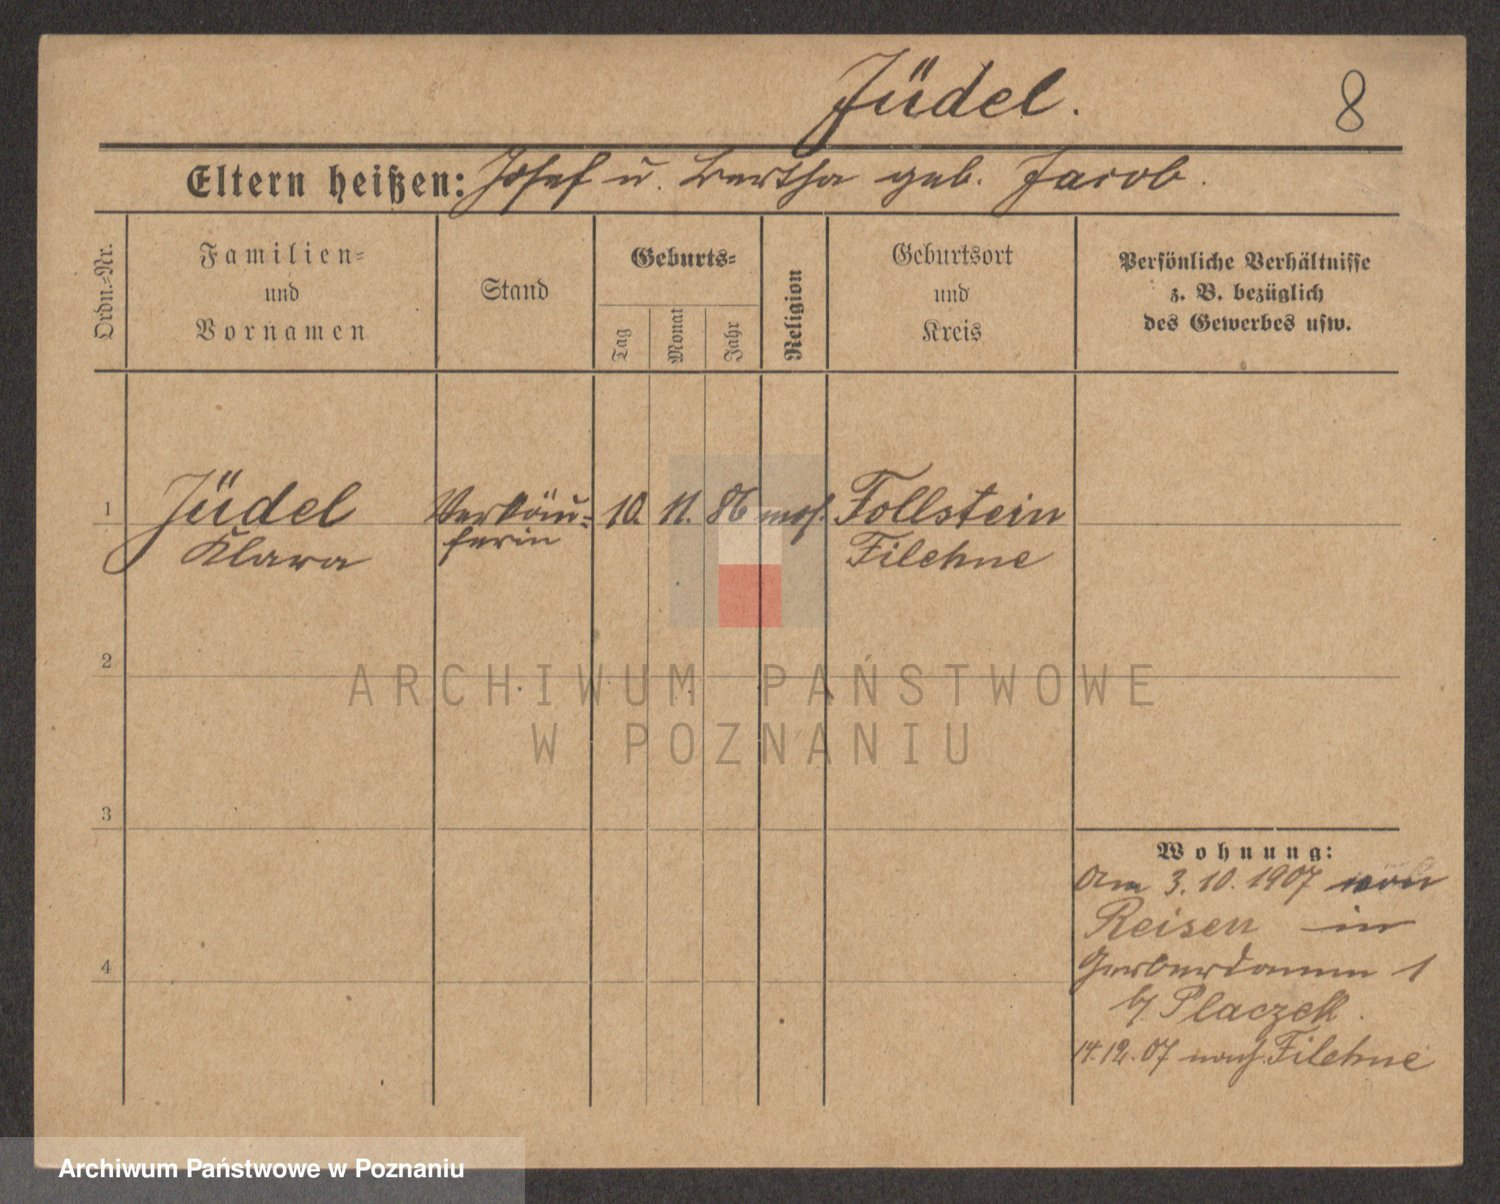 Jüdel.
8
Eltern heißen: Josef u. Bertha geb. Jacob.
Ordn.-Nr.
Familien-
und
Vornamen
Stand
Geburts-
Tag
Monat
Jahr
Religion
Geburtsort
und
Kreis
Persönliche Verhältnisse
z. B. bezüglich
des Gewerbes usw.
1 Jüdel Verkäu- 10. 11. 86 mos. Follstein
Klara ferin Filehne
2
ARCHIWUM PAŃSTWOWE
W POZNANIU
3
Wohnung:
Am 3.10.1907 von
Reisen in
4
Gerberdamm 1
b/ Placzek.
14.12.07 nach Filehne
Archiwum Państwowe w Poznaniu